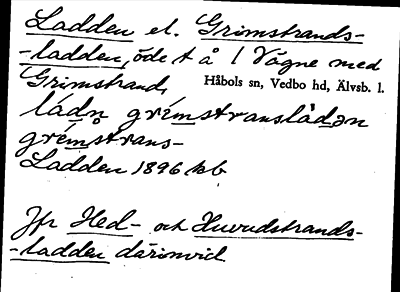 Ladden el. Grimstrands-
-ladden, öde t å 1 Vågne med
Grimstrand, Håbols sn, Vedbo hd, Älvsb. l.
ládn grímstranslàdən
grémstrans-
Ladden 1896 kb
Jfr Hed- och Huvudstrands-
-ladden därinvid